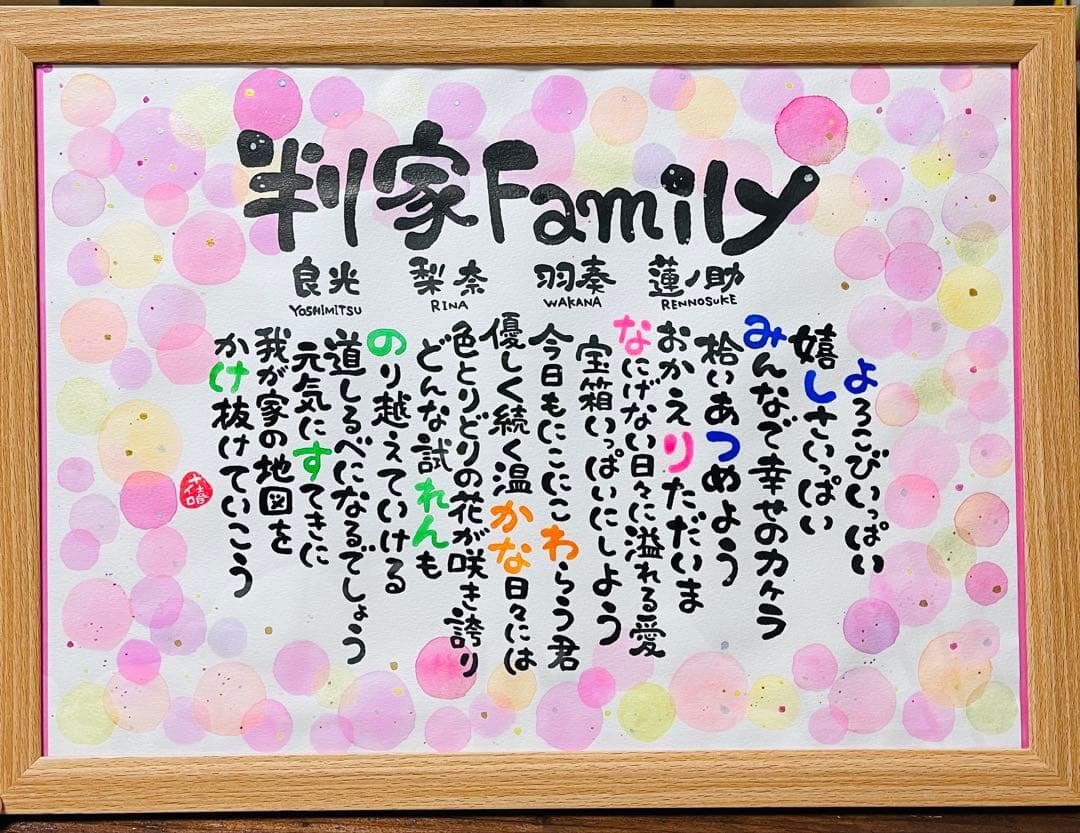 判家Family
良光 梨奈 羽奏 蓮ノ助
YOSHIMITSU RINA WAKANA RENNOSUKE
よろこびいっぱい
嬉しさいっぱい
みんなで幸せのカケラ
拾いあつめよう
おかえりただいま
なにげない日々に溢れる愛
宝箱いっぱいにしよう
今日もにこにこわらう君
優しく続く温かな日々には
色とりどりの花が咲き誇り
どんな試れんも
のり越えていける
道しるべになるでしょう
元気にすてきに
我が家の地図を
かけ抜けていこう